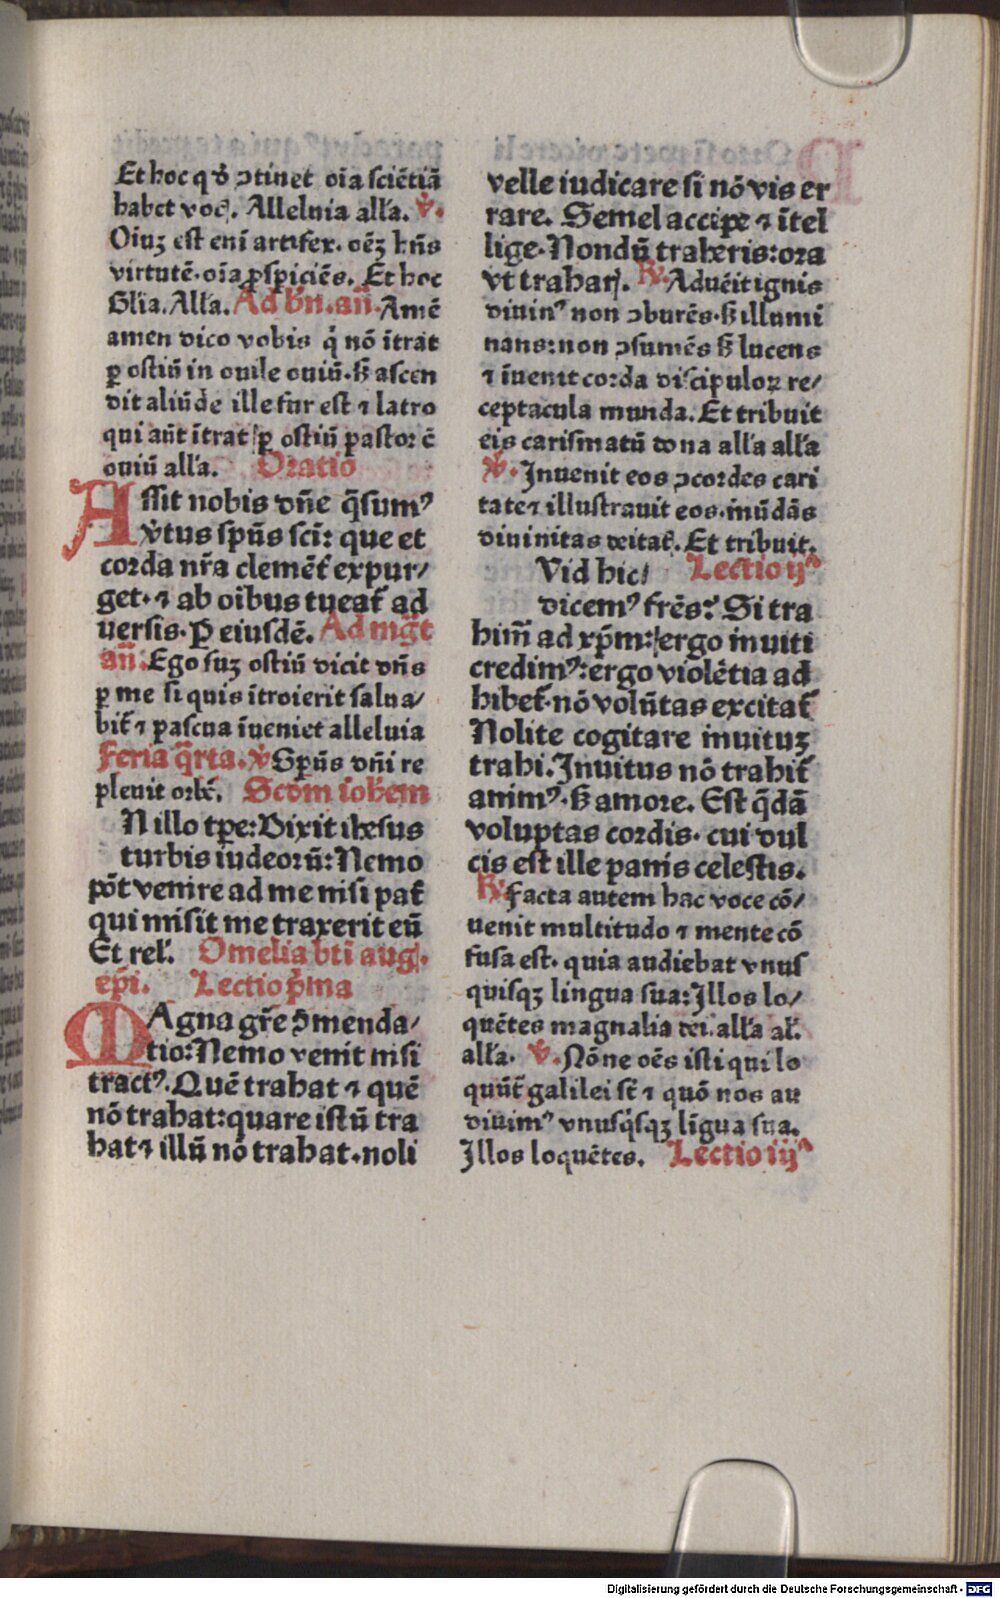 Et hoc qḋ ↄtinet oīa sciētiā
habet voc̄. Alleluia all'a. ℣.
Oiuꝫ est enī artifex. oēꝫ hn̄s
virtutē. oīa ꝓspiciēs. Et hoc
Gl'ia. All'a. Ad bn̄. an̄. Amē
amen dico vobis q̇ nō ītrat
ꝑ ostiū in ouile ouiū. sꝫ ascen
dit aliūde ille fur est ⁊ latro
qui aūt ītrat ꝑ ostiū pastor ē
ouiū all'a. Oratio
ASsit nobis dn̄e q̄sumꝰ
v̓tus spūs scī: que et
corda nr̄a clemēt̄ expur/
get. ⁊ ab oībus tueat̄ ad
uersis. P eiusdē. Ad mḡt
an̄. Ego suꝫ ostiū dicit dn̄s
ꝑ me si quis ītroierit salua/
bit̄ ⁊ pascua īueniet alleluia
Feria q̄rta. ℣ Spūs dn̄i re
pleuit orbē. Scd̄m ioh̄em
N illo tp̄e: Dixit ihesus
turbis iudeorū: Nemo
pōt venire ad me nisi pat̄
qui misit me traxerit eū
Et rel'. Omelia bt̄i aug.
ep̄i. Lectio p̄ma
MAgna gr̄e ↄmenda/
tio: Nemo venit nisi
tractꝰ. Quē trahat ⁊ quē
nō trahat: quare istū tra
hat ⁊ illū nō trahat. noli
velle iudicare si nō vis er
rare. Semel accipe ⁊ ītel
lige. Nondū traheris: ora
vt trahar̄. ℟. Aduēit ignis
diuinꝰ non ↄburēs. sꝫ illumi
nans: non ↄsumēs sꝫ lucens
⁊ īuenit corda discipuloꝝ re/
ceptacula munda. Et tribuit
eis carismatū dona all'a all'a
℣. Inuenit eos ↄcordes cari
tate ⁊ illustrauit eos. inūdās
diuinitas deitat̄. Et tribuit.
Vid hic/ Lectio ijᵃ
dicemꝰ frēs? Si tra
himꝰ ad xp̄m: ergo inuiti
credimꝰ: ergo violētia ad
hibet̄. nō volūtas excitat̄
Nolite cogitare inuituꝫ
trahi. Inuitus nō trahit̄
animꝰ. sꝫ amore. Est q̄dā
voluptas cordis. cui dul
cis est ille panis celestis.
℟. Facta autem hac voce cō/
uenit multitudo ⁊ mente cō
fusa est. quia audiebat vnus
quisqꝫ lingua sua: Illos lo/
quētes magnalia dei. all'a al'.
all'a. ℣. Nōne oēs isti qui lo
quūt̄ galilei sūt ⁊ quō nos au
diuimꝰ vnusq̇sqꝫ līgua sua.
Illos loquētes. Lectio iijᵃ
Digitalisierung gefördert durch die Deutsche Forschungsgemeinschaft - DFG